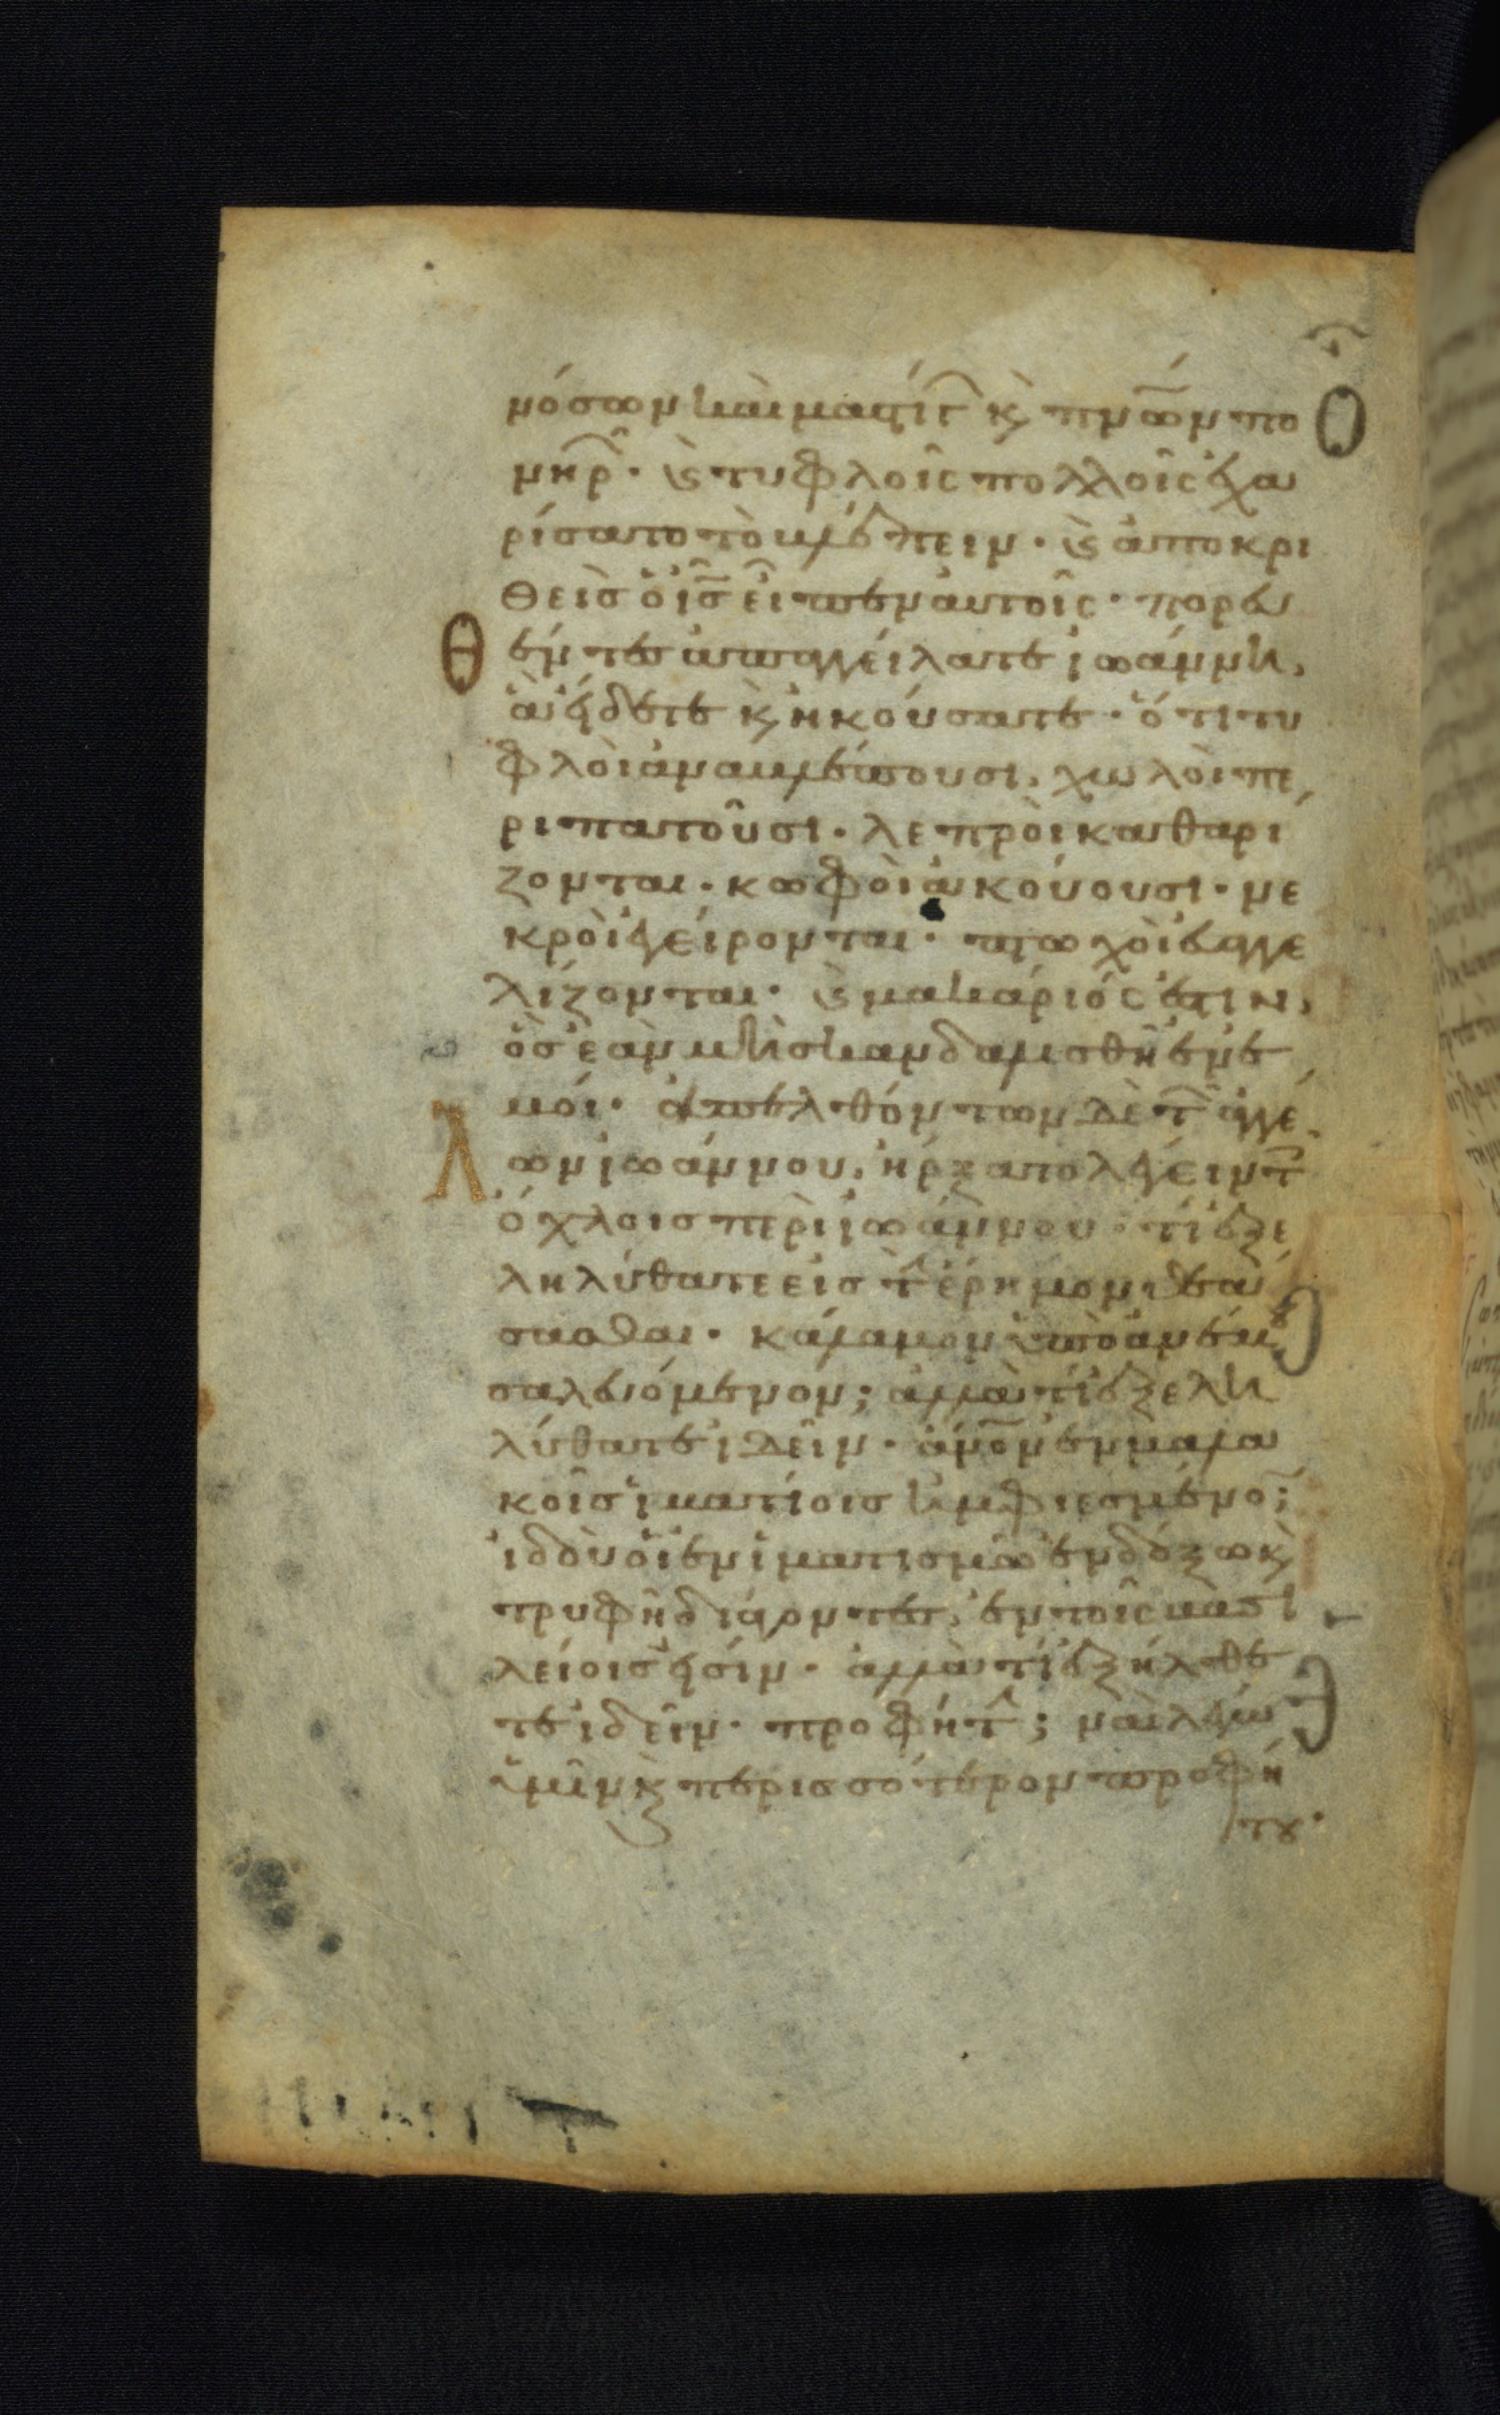 νόσων καὶ μαστίγ(ων) κ(αὶ) πν(ευμάτ)ων πο Ο
νηρ(ῶν)· κ(αὶ) τυφλοῖς πολλοῖς ἐχα
ρίσατο τὸ βλέπειν· κ(αὶ) ἀποκρι
θεὶς ὁ ι̅ς̅ εἶπεν αὐτοῖς· πορευ
Θ έντες ἀπαγγείλατε ἰωάννη,
ἃ εἴδετε κ(αὶ) ἠκούσατε· ὅτι τυ
φλοὶ ἀναβλέπουσι, χωλοὶ πε
ριπατοῦσι· λεπροὶ καθαρί
ζονται· κωφοὶ ἀκούουσι· νε
κροὶ ἐγείρονται· πτωχοὶ εὐαγγε
λίζονται· κ(αὶ) μακάριός ἐστιν,
ὃς ἐὰν μὴ σκανδαλισθῆ ἐν ἐ
μοί· ἀπελθόντων δὲ τ(ῶν) ἀγγέ
λων ἰωάννου, ἤρξατο λέγειν τ(οῖς)
ὄχλοις περὶ ἰωάννου· τί ἐξε
ληλύθατε εἰς τ(ὴν) ἔρημον θεά
σασθαι· κάλαμον ὑπὸ ἀνέμου
σαλευόμενον; ἀλλὰ τί ἐξελη
λύθατε ἰδεῖν· ἄν(θρωπ)ον ἐν μαλα
κοῖς ἱματίοις ἠμφιεσμένον;
ἰδοὺ οἱ ἐν ἱματισμῶ ἐνδόξω κ(αὶ)
τρυφῆ διάγοντες, ἐν τοῖς βασι
λείοις εἰσίν· ἀλλὰ τί ἐξήλθε
τε ἰδεῖν· προφήτ(ην); ναὶ λέγω
ὑμῖν κ(αὶ) περισσότερον προφή
του·